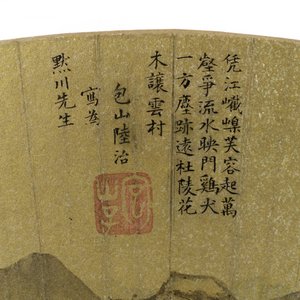 凭江巀嵲芙容起萬
壑爭流水映門雞犬
一方塵跡遠杜陵花
木讓雲村
包山陸治
寫
默川先生
包山子